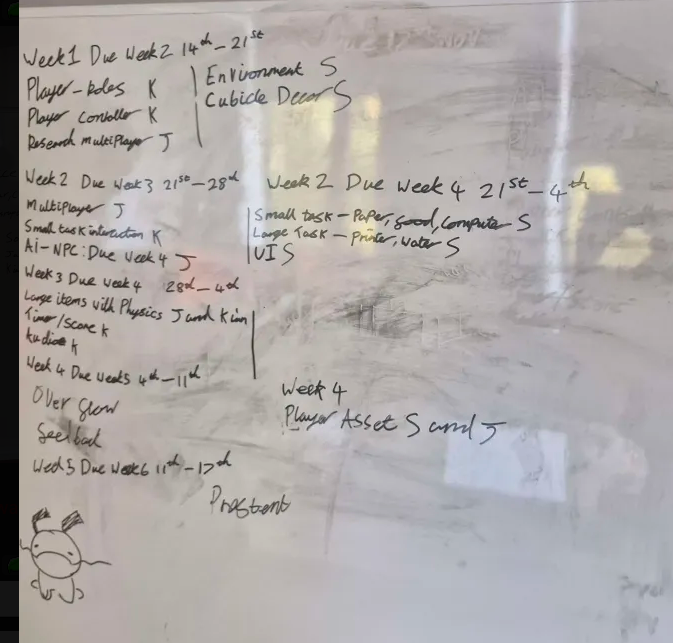 Week 1 Due Week 2 14th - 21st
Player - Roles K
Player Controller K
Research Multiplayer J
Environment S
Cubicle Decor S
Week 2 Due Week 3 21st - 28th
Multiplayer J
Small task interaction K
Ai - NPC: Due week 4 J
Week 2 Due Week 4 21st - 4th
Small task - Paper, food, Computer S
Large Task - Printer, water S
UI S
Week 3 Due week 4 28th - 4th
Large items with Physics J and K
Timer/Score K
Audio K
Week 4 Due Week 5 4th - 11th
Over flow
feedback
Week 4
Player Asset S and J
Week 5 Due Week 6 11th - 17th